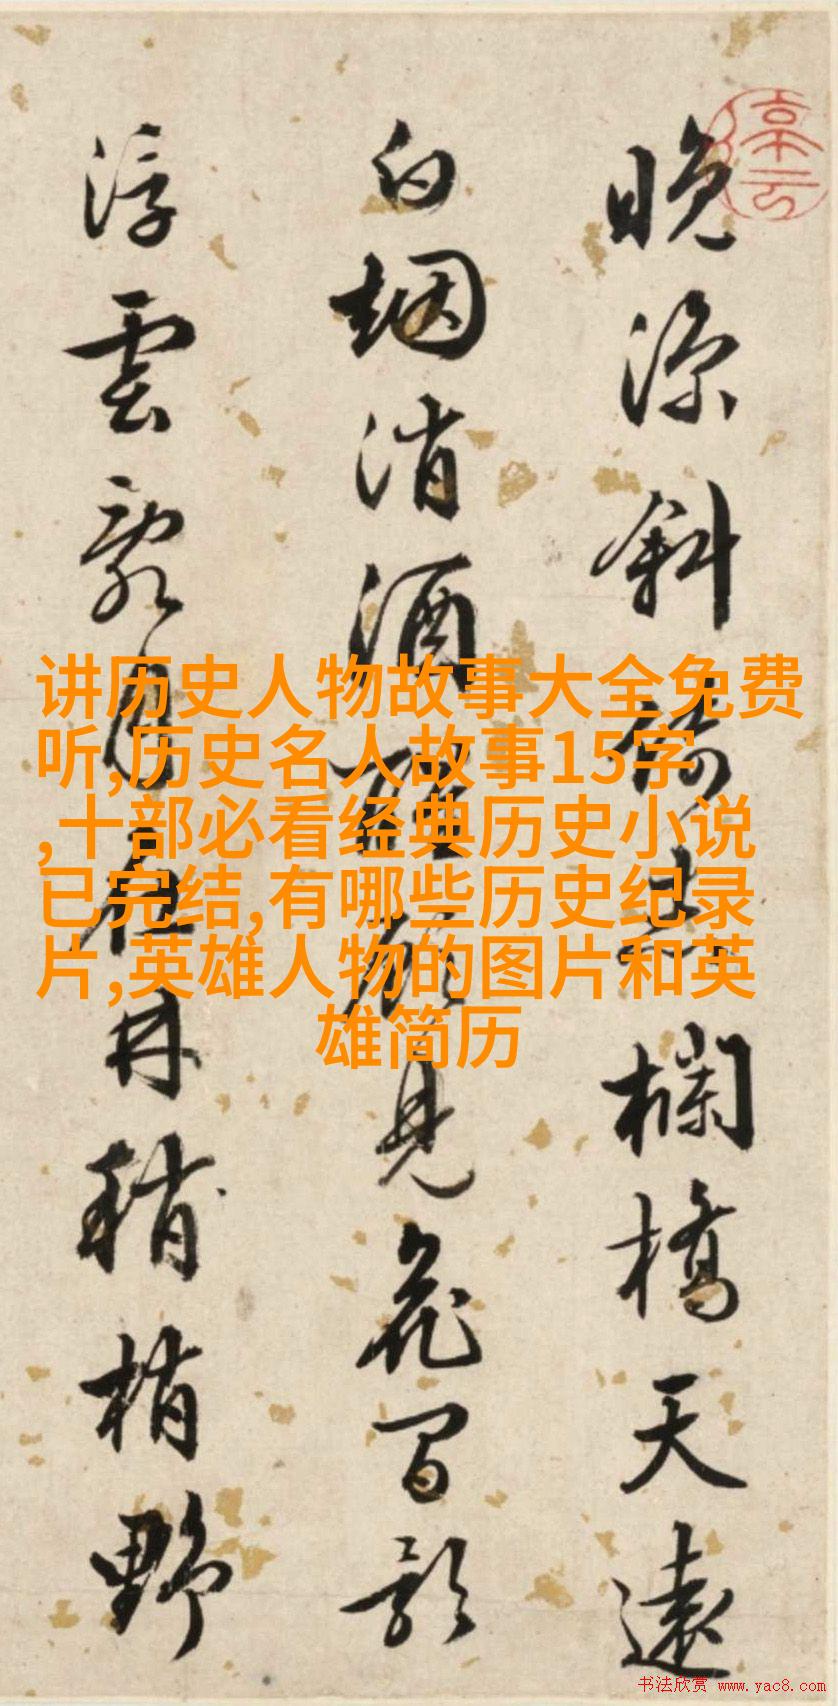 晚凉斜倚赤欄橋天遠
白烟消酒醒顧見花間影
浮雲散月在林稍梢野
讲历史人物故事大全免费
听,历史名人故事15字
,十部必看经典历史小说
已完结,有哪些历史纪录
片,英雄人物的图片和英
雄简历
书法欣赏 www.yac8.com